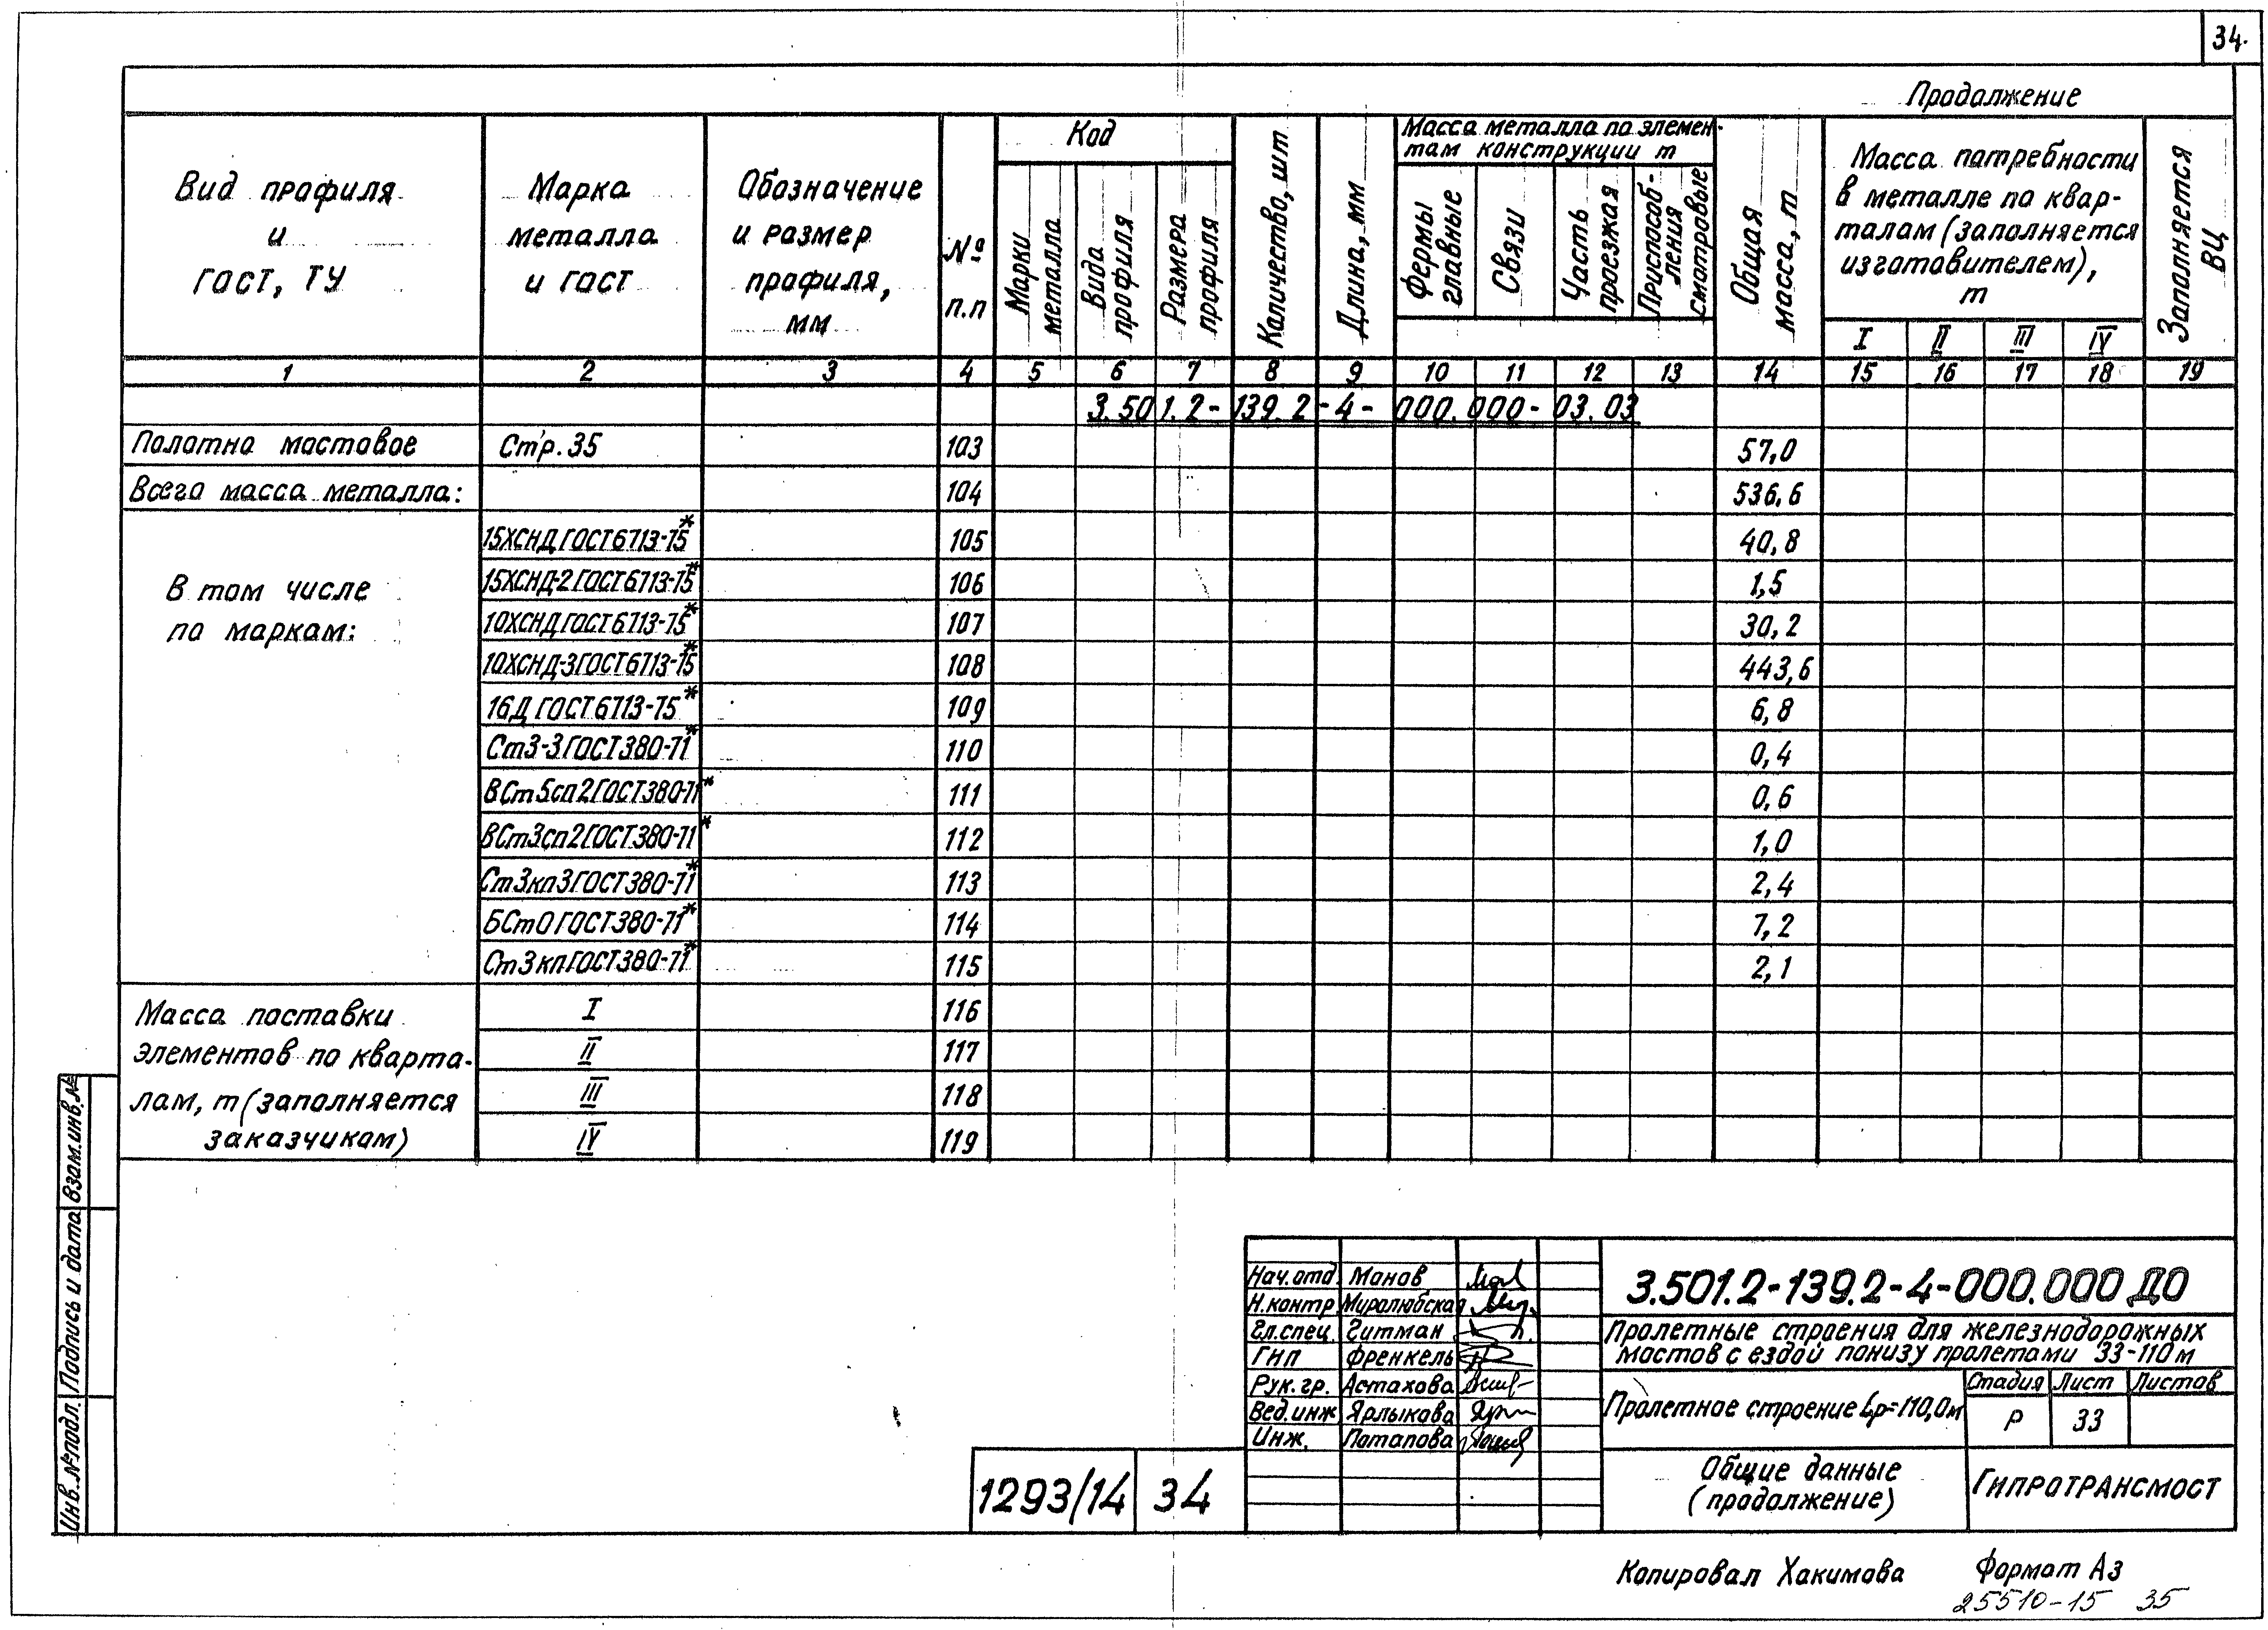 34.
Продолжение
Вид профиля и ГОСТ, ТУ
Марка металла и ГОСТ
Обозначение и размер профиля, мм
№ п.п
Код
Марки металла
Вида профиля
Размера профиля
Количество, шт
Длина, мм
Масса металла по элемен-
там конструкции т
Фермы главные
Связи
Часть проезжая
Приспособ-
ления
смотровые
Общая масса, т
Масса потребности
в металле по квар-
талам (заполняется
изготовителем),
т
I II III IV
Заполняется ВЦ
1 2 3 4 5 6 7 8 9 10 11 12 13 14 15 16 17 18 19
3.501.2-139.2-4-000.000-03.03
Полотно мостовое Стр. 35 103 57,0
Всего масса металла: 104 536,6
В том числе
по маркам:
15ХСНД ГОСТ 6713-75* 105 40,8
15ХСНД-2 ГОСТ 6713-75* 106 1,5
10ХСНД ГОСТ 6713-75* 107 30,2
10ХСНД-3 ГОСТ 6713-75* 108 443,6
16Д ГОСТ 6713-75* 109 6,8
Ст3-3 ГОСТ 380-71* 110 0,4
ВСт5сп2 ГОСТ 380-71* 111 0,6
ВСт3сп2 ГОСТ 380-71* 112 1,0
Ст3кп3 ГОСТ 380-71* 113 2,4
БСт0 ГОСТ 380-71* 114 7,2
Ст3кп ГОСТ 380-71* 115 2,1
Масса поставки
элементов по кварта-
лам, т (заполняется
заказчиком)
I 116
II 117
III 118
IV 119
Взам.инв.№
Подпись и дата
Инв.№ подл.
Нач.отд Монов
Н.контр Миролюбская
Гл.спец. Гитман
ГИП Френкель
Рук.гр. Астахова
Вед.инж Ярлыкова
Инж. Потапова
3.501.2-139.2-4-000.000 ДО
Пролетные строения для железнодорожных
мостов с ездой понизу пролетами 33-110 м
Пролетное строение Lр=110,0м
Стадия Лист Листов
Р 33
Общие данные
(продолжение)
ГИПРОТРАНСМОСТ
1293/14 34
Копировал Хакимова Формат А3
25510-15 35